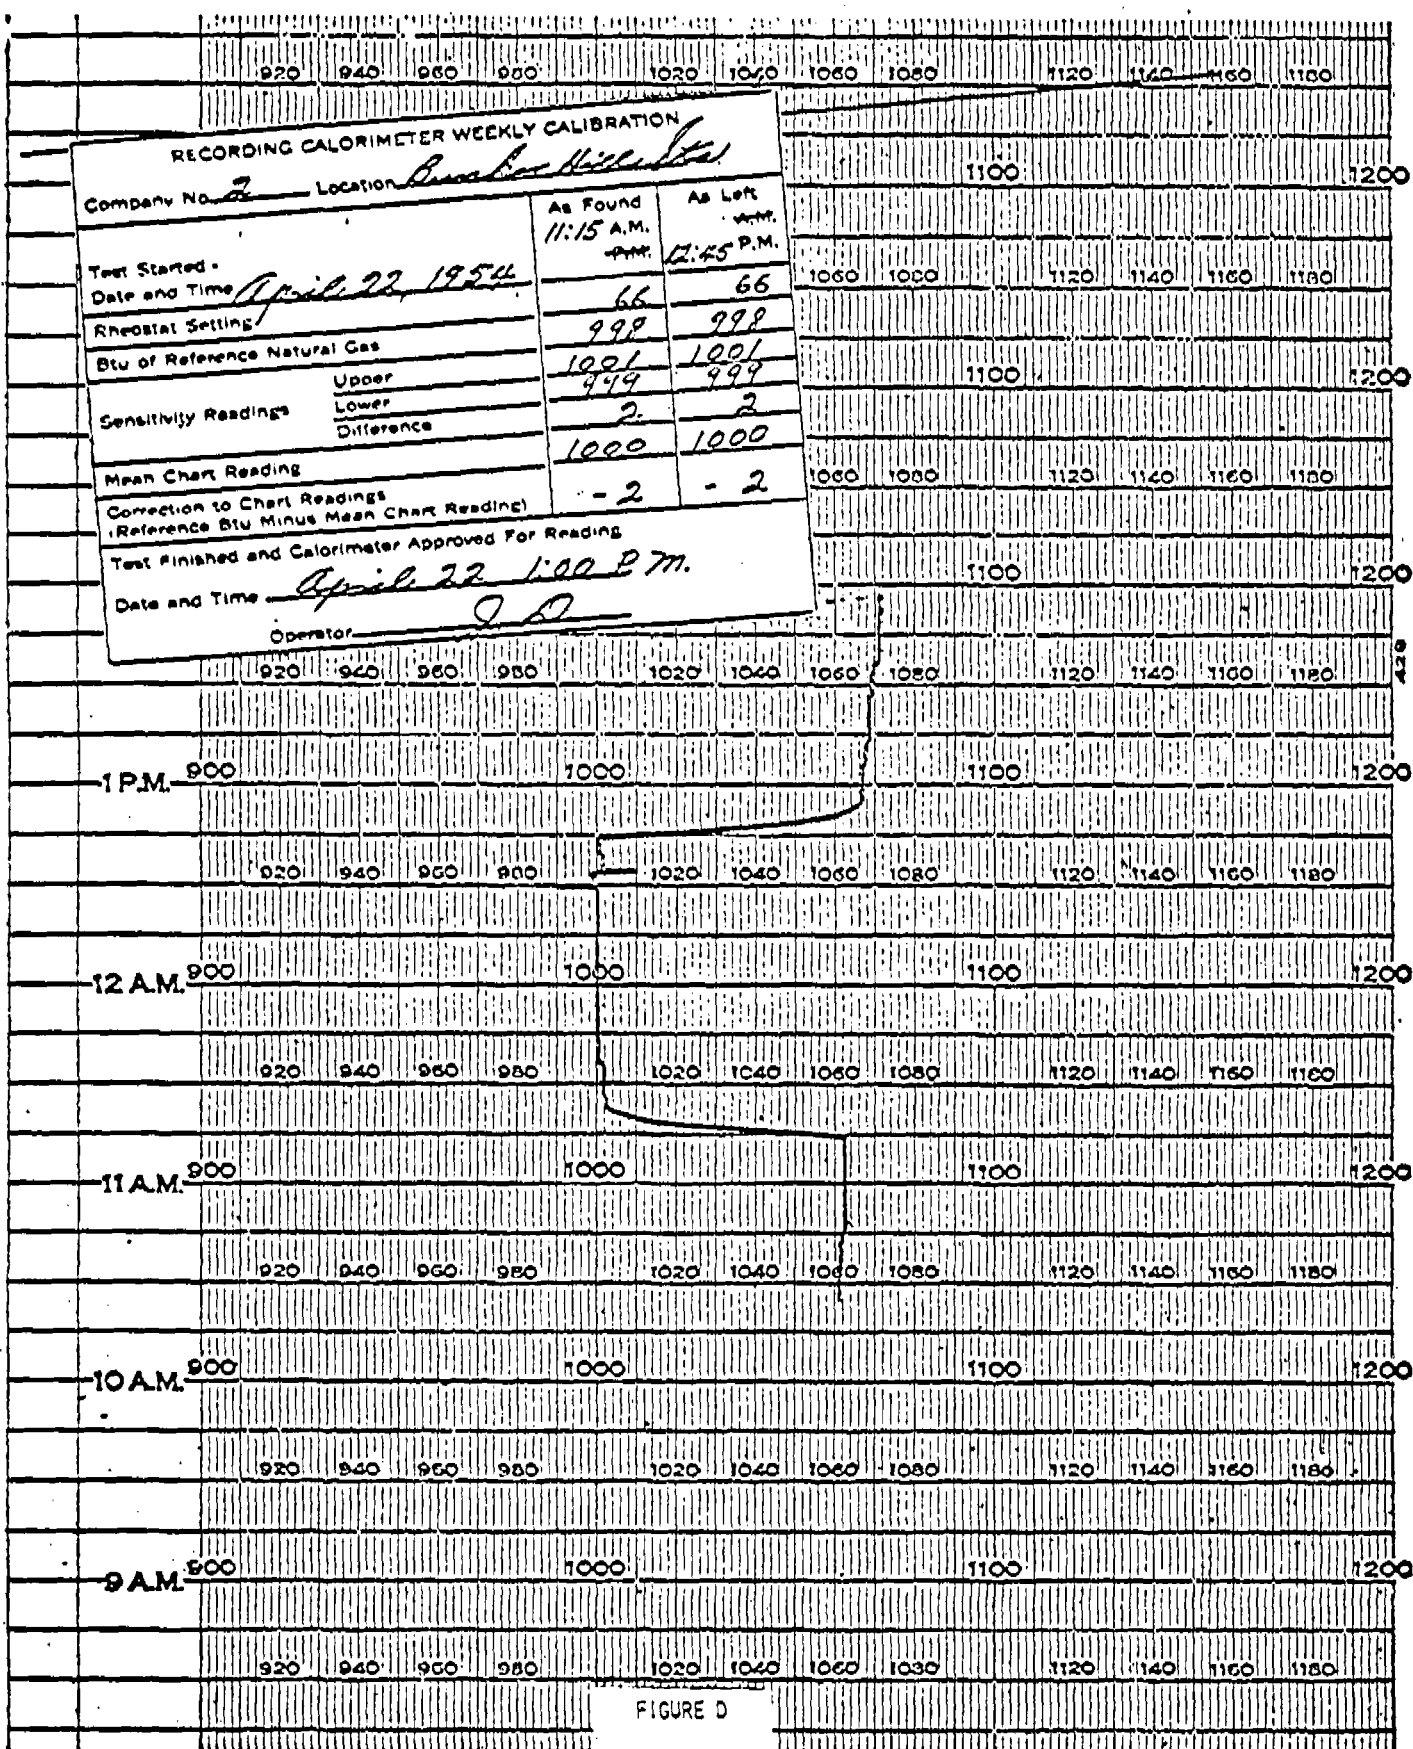 920 940 960 980 1020 1040 1060 1080 1120 1140 1160 1180
RECORDING CALORIMETER WEEKLY CALIBRATION
1100 1200
Company No. 2 Location Bunker Hill Sta.
As Found As Left
11:15 A.M. A.M.
P.M. 12:45 P.M.
Test Started -
Date and Time April 22, 1954
1060 1080 1120 1140 1160 1180
Rheostat Setting 66 66
Btu of Reference Natural Gas 998 998
1100 1200
Sensitivity Readings
Upper 1001 1001
Lower 999 999
Difference 2 2
Mean Chart Reading 1000 1000
1060 1080 1120 1140 1160 1180
Correction to Chart Readings
(Reference Btu Minus Mean Chart Reading) - 2 - 2
Test Finished and Calorimeter Approved For Reading
1100 1200
Date and Time April 22 1:00 P.M.
Operator
920 940 960 980 1020 1040 1060 1080 1120 1140 1160 1180
1 P.M. 900 1000 1100 1200
920 940 960 980 1020 1040 1060 1080 1120 1140 1160 1180
12 A.M. 900 1000 1100 1200
920 940 960 980 1020 1040 1060 1080 1120 1140 1160 1180
11 A.M. 900 1000 1100 1200
920 940 960 980 1020 1040 1060 1080 1120 1140 1160 1180
10 A.M. 900 1000 1100 1200
920 940 960 980 1020 1040 1060 1080 1120 1140 1160 1180
9 A.M. 900 1000 1100 1200
920 940 960 980 1020 1040 1060 1080 1120 1140 1160 1180
FIGURE D